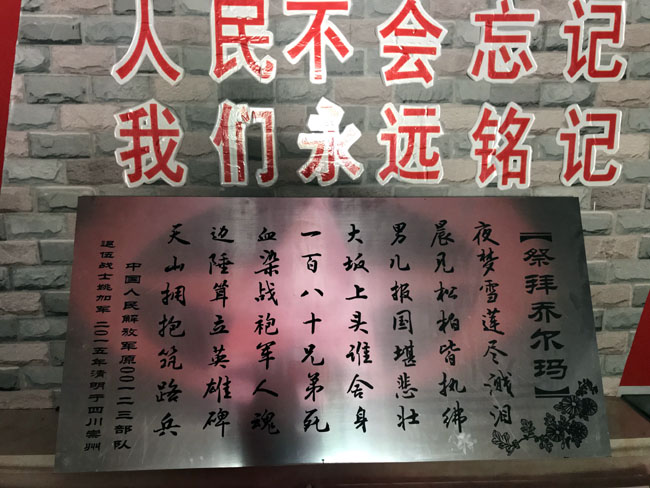 人民不会忘记
我们永远铭记
【祭拜乔尔玛】
夜梦雪莲尽溅泪
晨见松柏皆执绋
男儿报国堪悲壮
大坂上头谁舍身
一百八十兄弟死
血染战袍军人魂
边陲耸立英雄碑
天山拥抱筑路兵
中国人民解放军原00一二三部队
退伍战士姚加军 二〇一五年清明于四川崇州